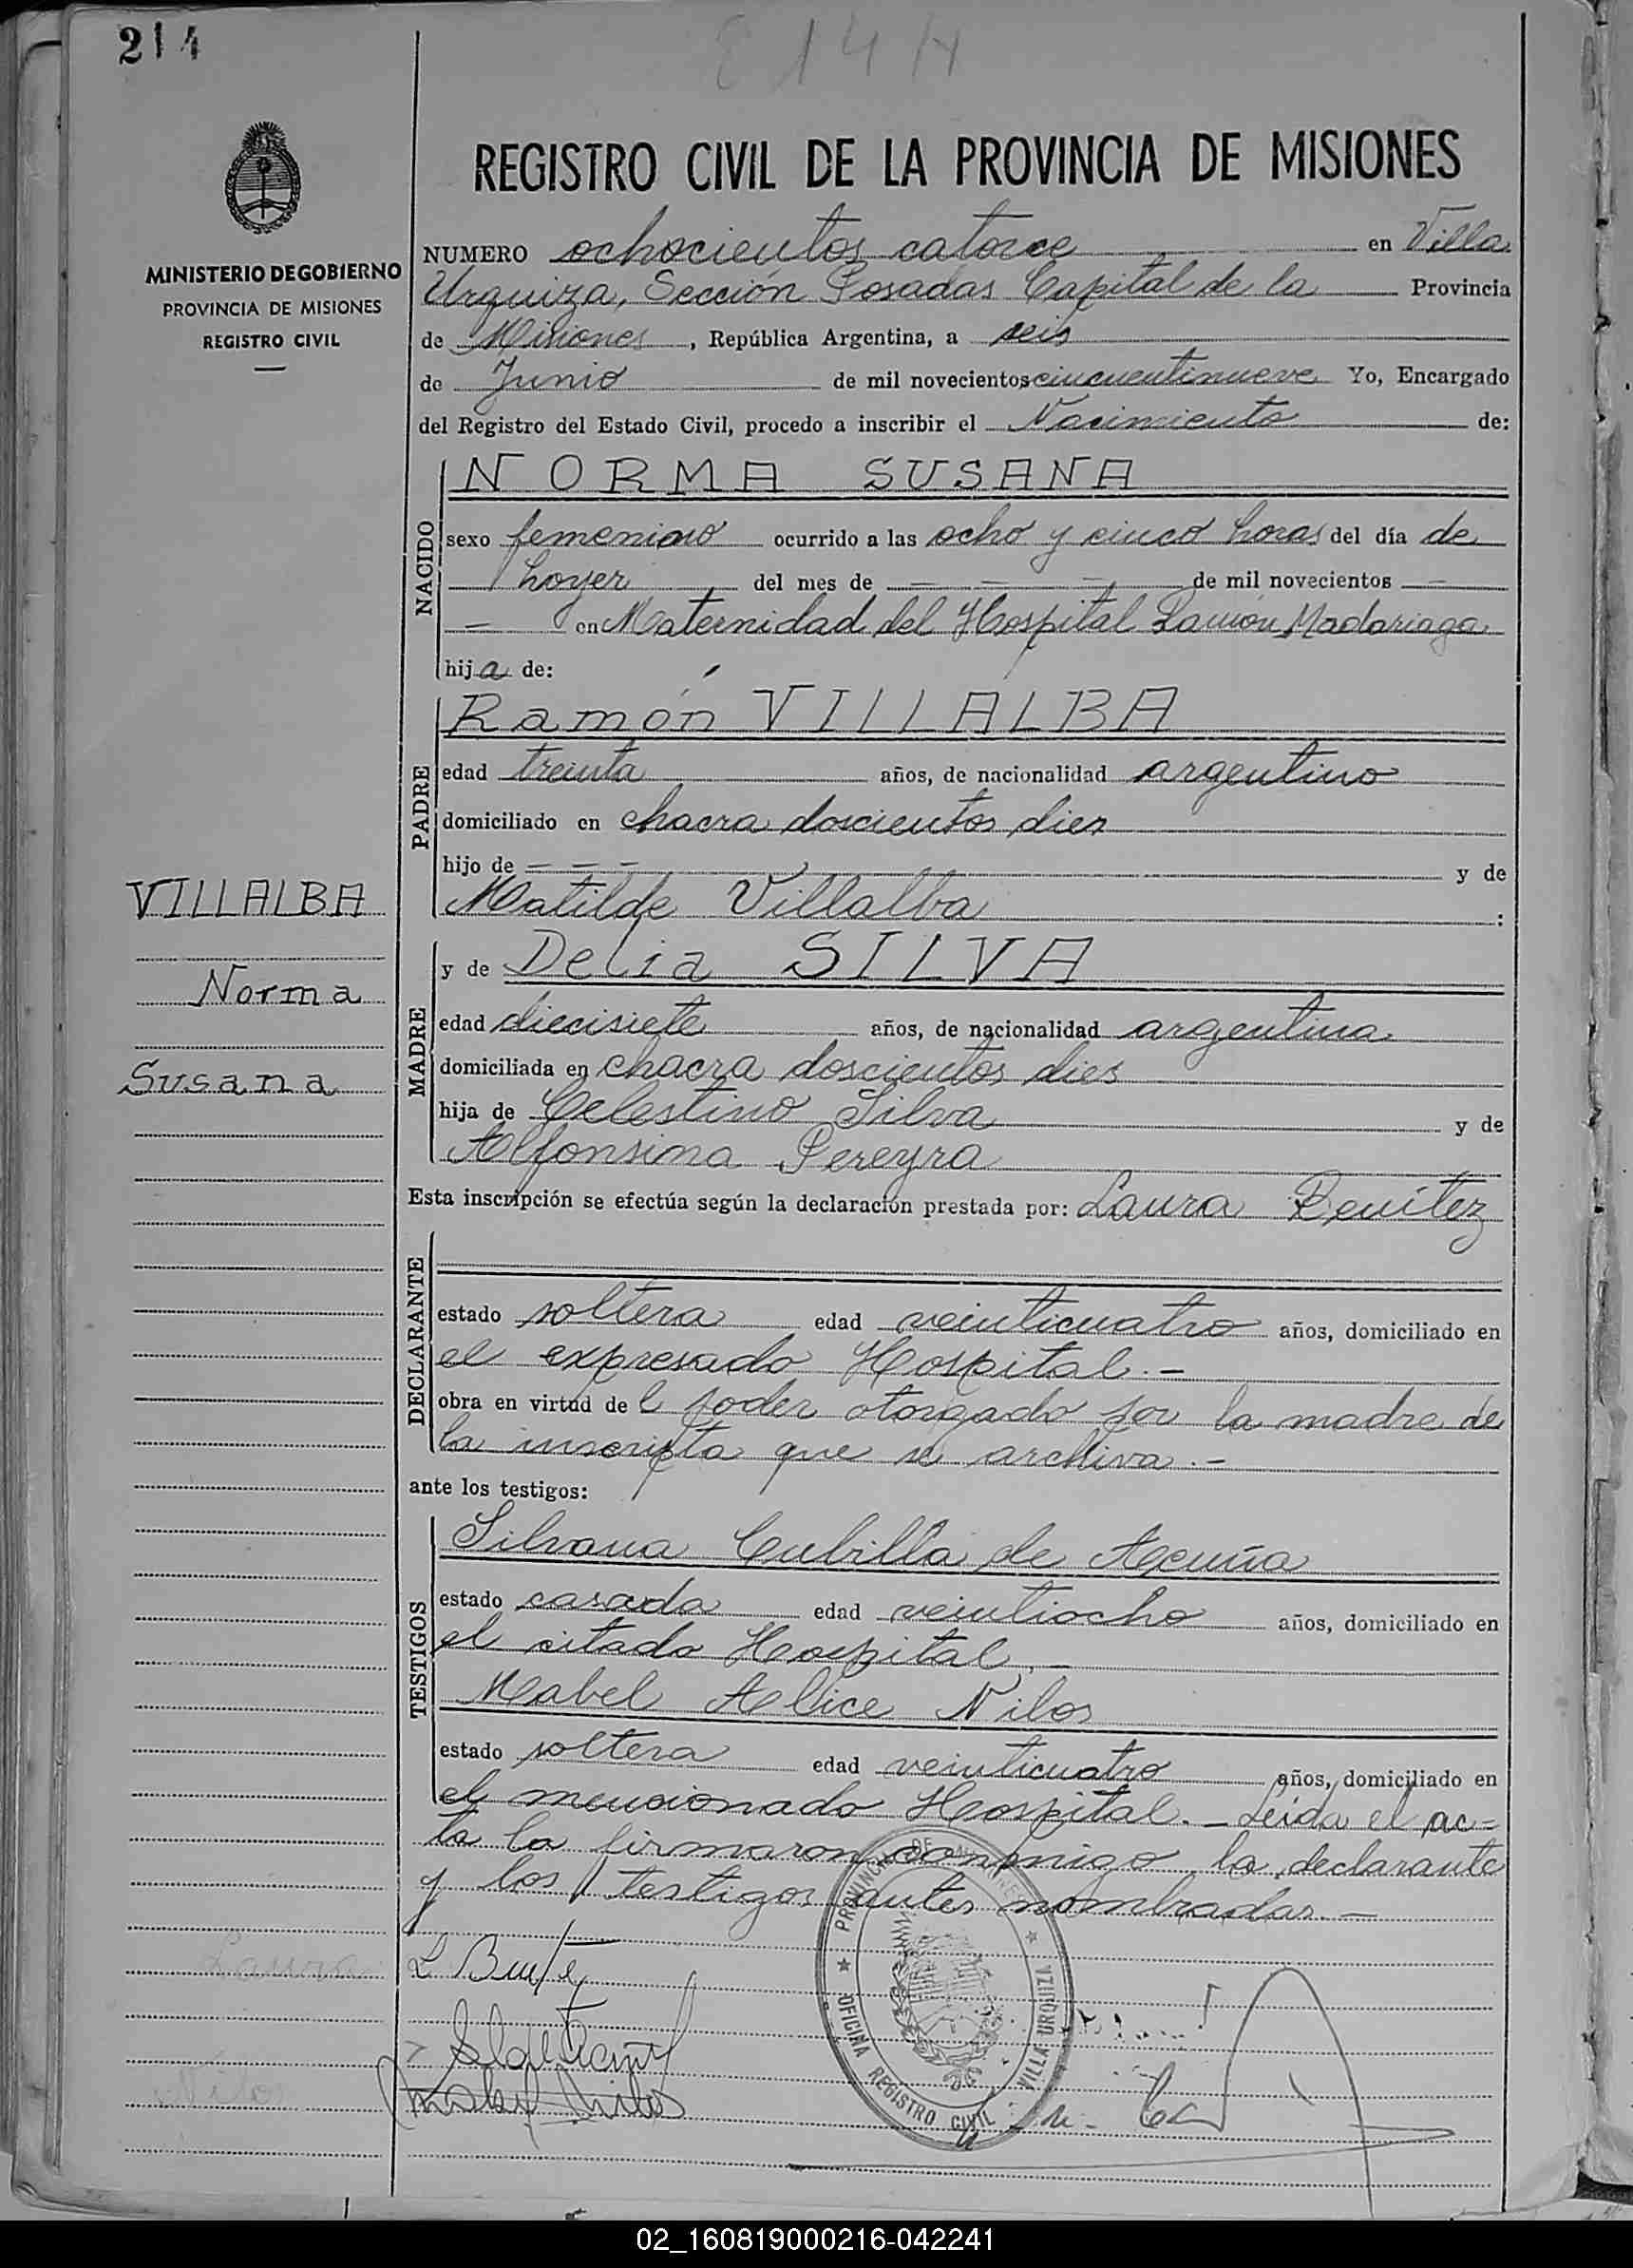 214
814 H
MINISTERIO DE GOBIERNO
PROVINCIA DE MISIONES
REGISTRO CIVIL
REGISTRO CIVIL DE LA PROVINCIA DE MISIONES
NUMERO ochocientos catorce en Villa
Urquiza, Sección Posadas Capital de la Provincia
de Misiones, República Argentina, a seis
de Junio de mil novecientos cincuentinueve Yo, Encargado
del Registro del Estado Civil, procedo a inscribir el Nacimiento de:
NACIDO
NORMA SUSANA
sexo femenino ocurrido a las ocho y cinco horas del día de
hoyer del mes de — — — de mil novecientos —
— en Maternidad del Hospital Ramón Madariaga
hija de:
PADRE
Ramón VILLALBA
edad treinta años, de nacionalidad argentino
domiciliado en chacra doscientos diez
hijo de — — — y de
Matilde Villalba :
VILLALBA
Norma
Susana
MADRE
y de Delia SILVA
edad diecisiete años, de nacionalidad argentina
domiciliada en chacra doscientos dies
hija de Celestino Silva y de
Alfonsina Pereyra
Esta inscripción se efectúa según la declaración prestada por: Laura Benítez
DECLARANTE
estado soltera edad veinticuatro años, domiciliado en
el expresado Hospital.-
obra en virtud del poder otorgado por la madre de
la inscripta que se archiva.-
ante los testigos:
TESTIGOS
Silvana Cubilla de Acuña
estado casada edad veintiocho años, domiciliado en
el citado Hospital.-
Mabel Alice Nilos
estado soltera edad veinticuatro años, domiciliado en
el mencionado Hospital.- Leída el ac=
ta la firmaron conmigo, la declarante
y los testigos antes nombradas.-
L Benítez
Mabel Nilos
PROVINCIA DE MISIONES
OFICINA REGISTRO CIVIL
VILLA URQUIZA
Laura
Nilos
02_160819000216-042241